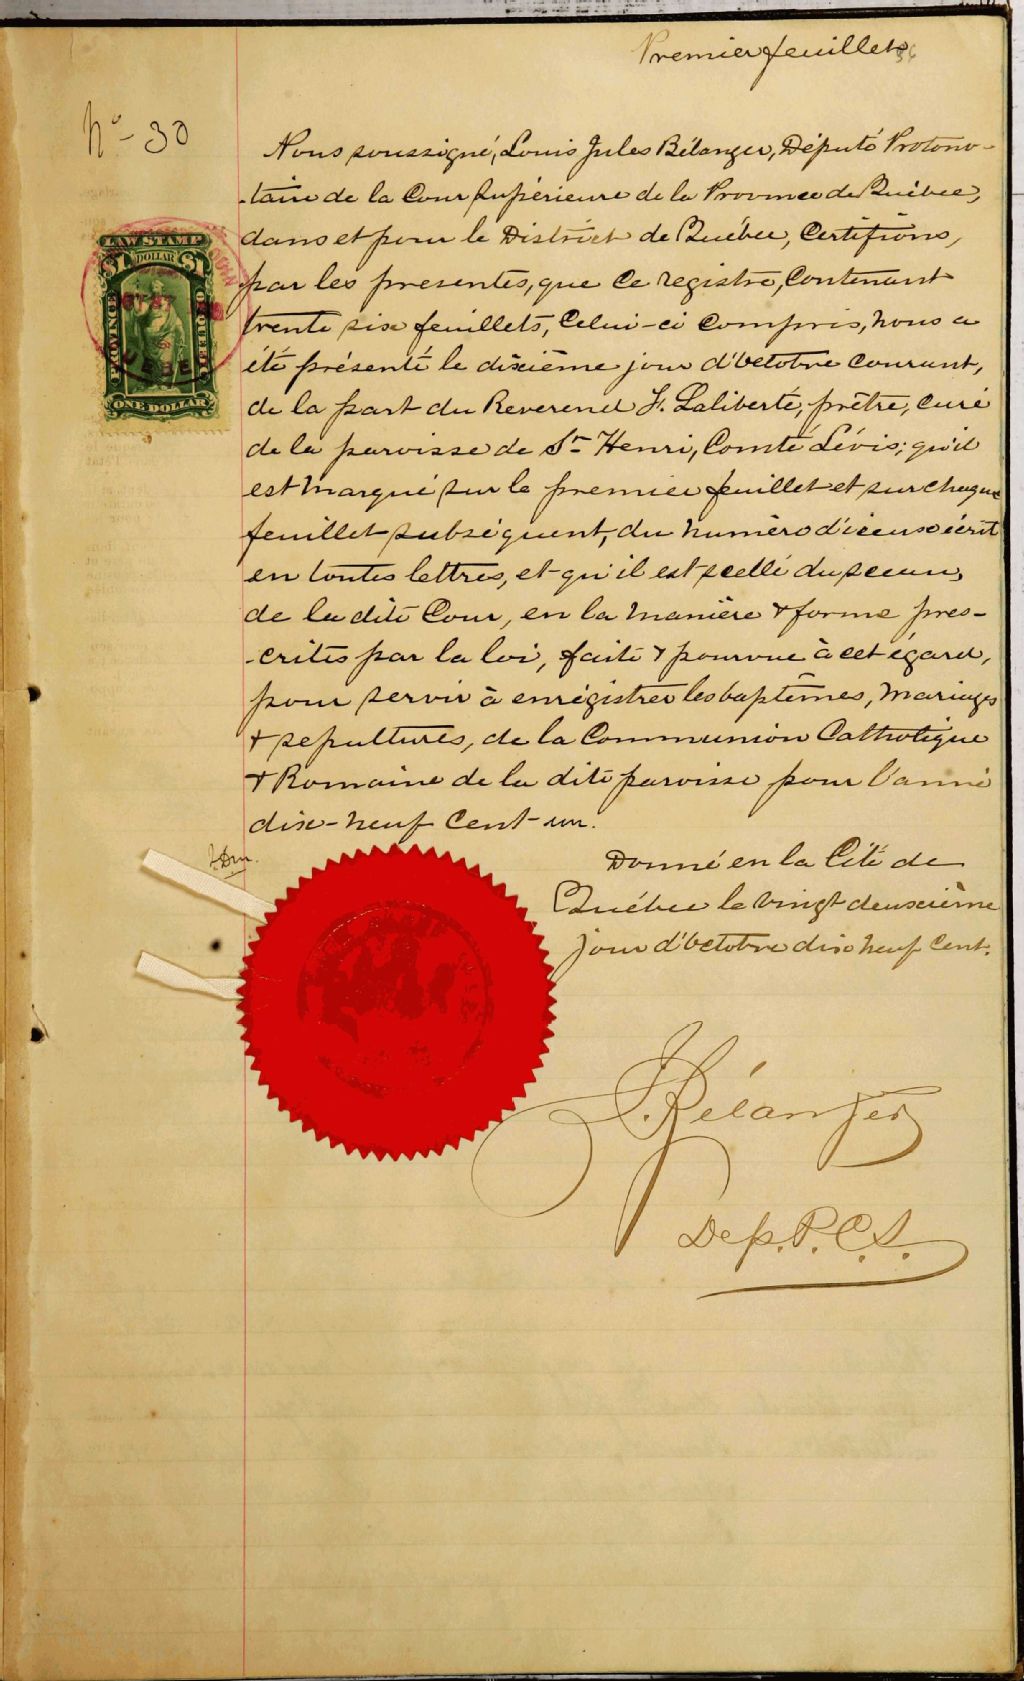 Premier feuillet
36
No - 30
Nous soussigné, Louis Jules Bélanger, Député Protono-
-taire de la Cour Supérieure de la Province de Québec,
dans et pour le District de Québec, Certifions,
par les présentes, que ce registre, contenant
trente six feuillets, Celui-ci compris, nous a
été présenté le dixième jour d'Octobre courant,
de la part du Reverend F. Laliberté, prêtre, curé
de la paroisse de St Henri, Comté Lévis; qu'il
est marqué sur le premier feuillet et sur chaque
feuillet subséquent, du numéro d'iceux écrit
en toutes lettres, et qu'il est scellé du sceau,
de la dite Cour, en la manière & forme pres-
-crites par la loi, faite & pourvue à cet égard,
pour servir à enrégistrer les baptêmes, mariages
& sépultures, de la Communion Catholique
& Romaine de la dite paroisse pour l'anné
dix-neuf cent-un.
Donné en la Cité de
Québec le vingt deuxième
jour d'Octobre dix neuf cent.
J. Bélanger
Dep. P. C. S.
LAW STAMP
$1 DOLLAR $1
PROVINCE
ONE DOLLAR